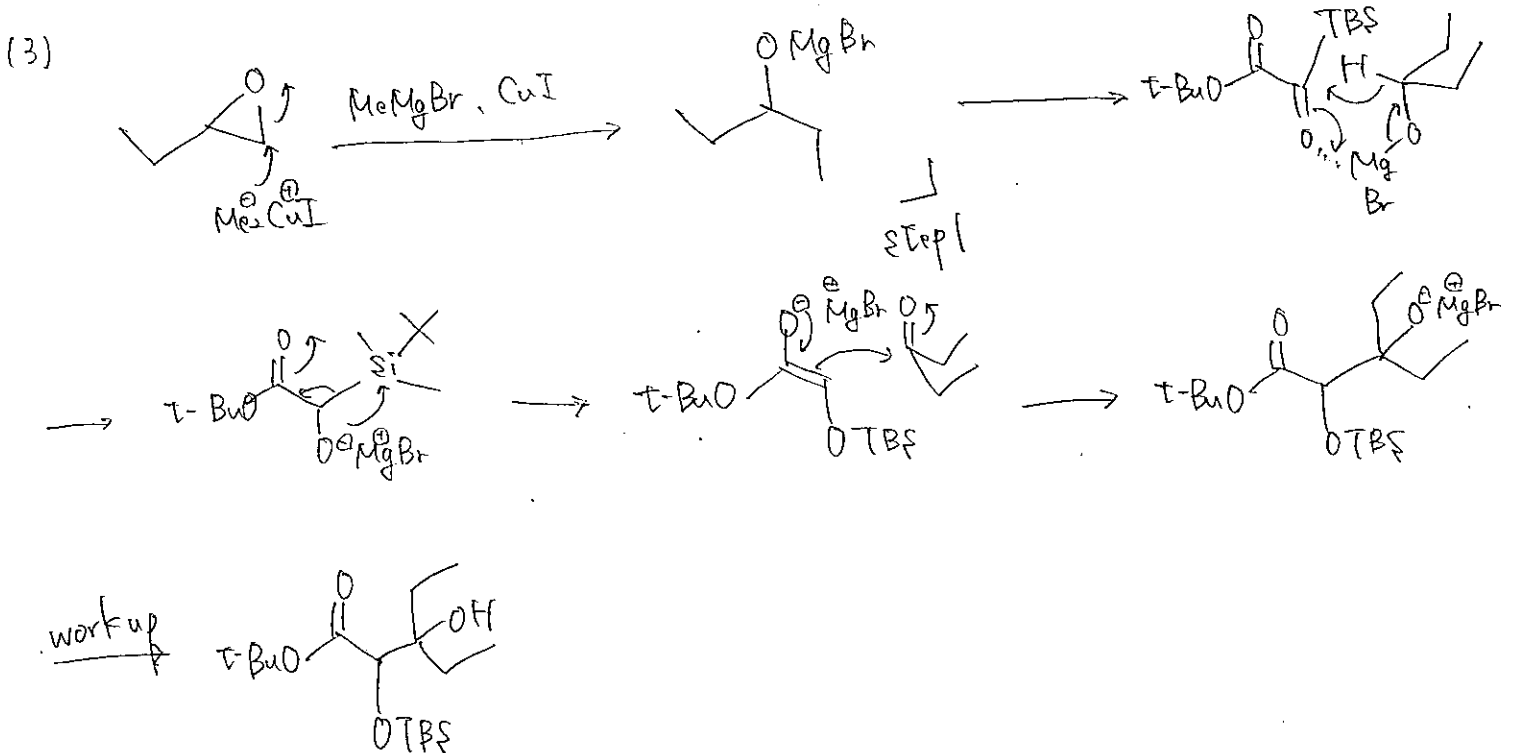 (3)
O
MeMgBr, CuI
Me₂⊖Cu⊕I
OMgBr
step 1
t-BuO
O
TBS
H
O
Mg
Br
O
t-BuO
O
Si
O⊖ ⊕MgBr
t-BuO
O⊖ ⊕MgBr
OTBS
O
t-BuO
O
OTBS
O⊖ ⊕MgBr
work up
t-BuO
O
OTBS
OH